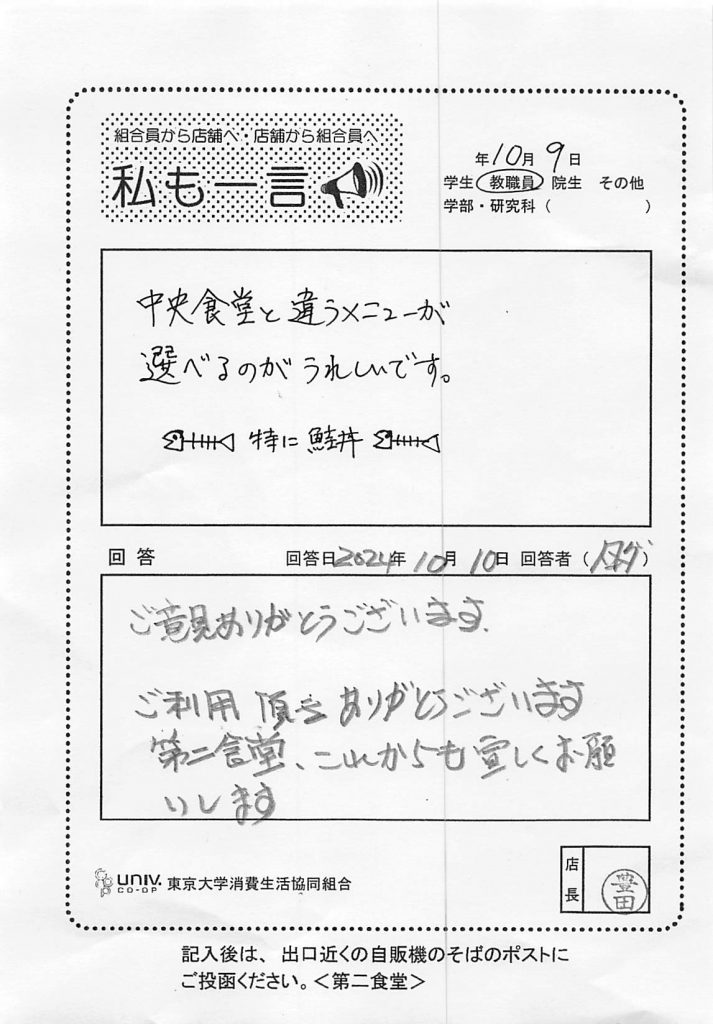 組合員から店舗へ・店舗から組合員へ
私も一言
年10月9日
学生 教職員 院生 その他
学部・研究科（ ）
中央食堂と違うメニューが
選べるのがうれしいです。
特に鮭丼
回答 回答日2024年10月10日 回答者（ ）
ご意見ありがとうございます。
ご利用頂きありがとうございます
第二食堂、これからも宜しくお願
いします
店長
豊田
UNIV. CO-OP 東京大学消費生活協同組合
記入後は、出口近くの自販機のそばのポストに
ご投函ください。＜第二食堂＞